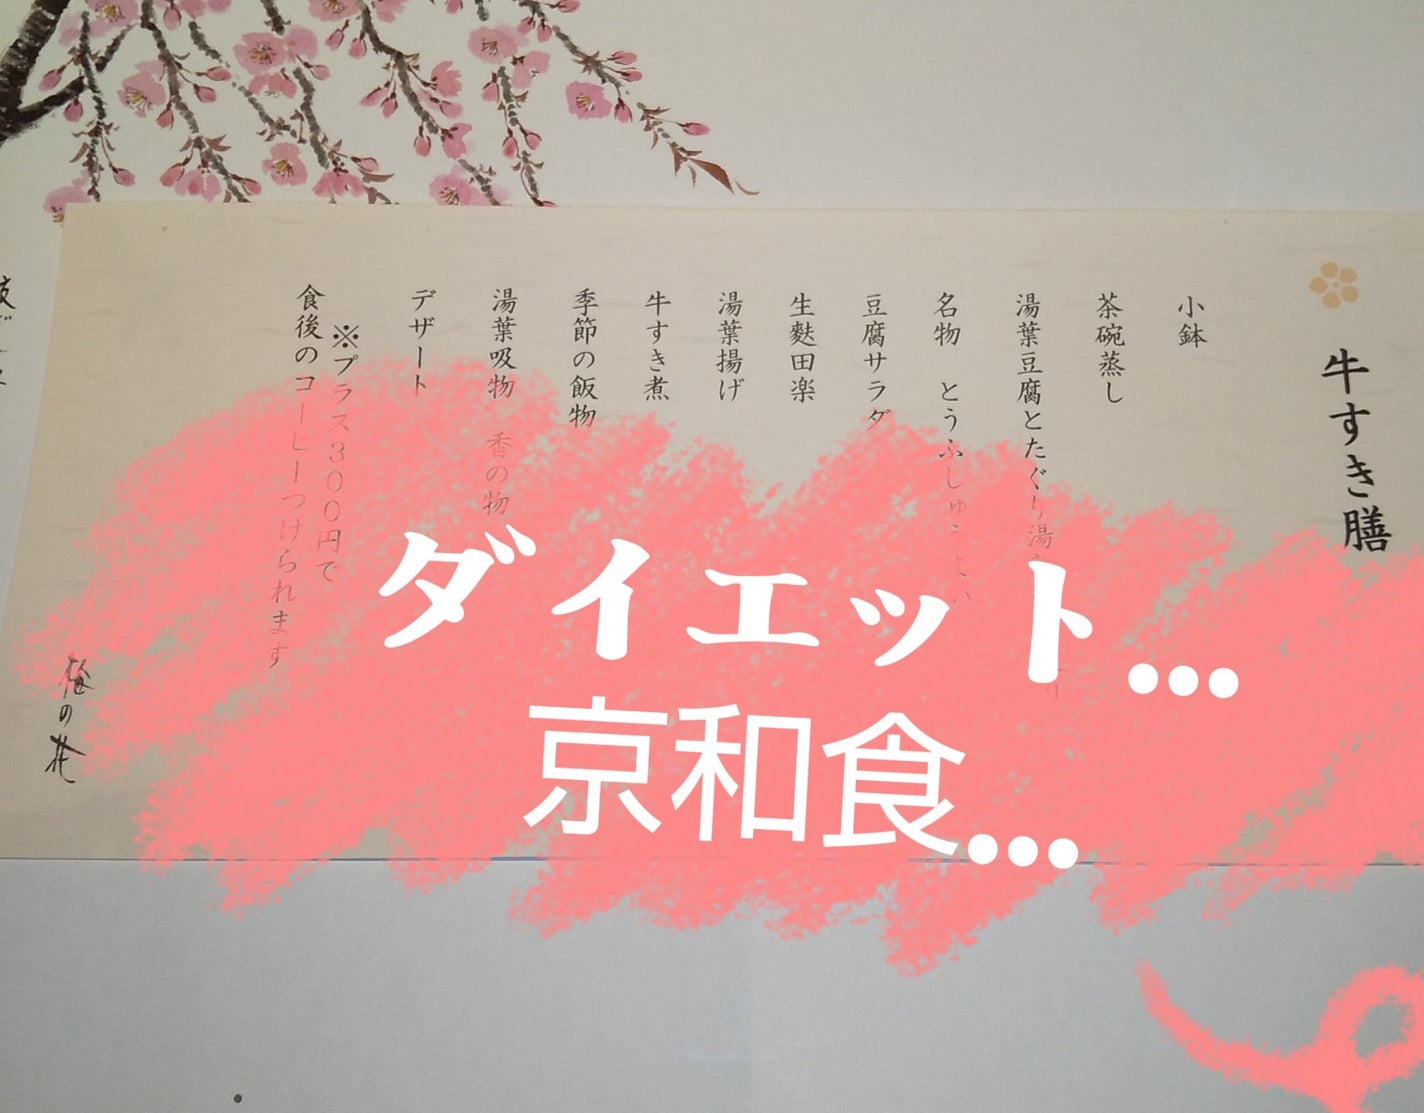 牛すき膳
小鉢
茶碗蒸し
湯葉豆腐とたぐり湯
名物 とうふしゅうまい
豆腐サラダ
生麩田楽
湯葉揚げ
牛すき煮
季節の飯物
湯葉吸物 香の物
デザート
※プラス300円で
食後のコーヒーつけられます
梅の花
ダイエット...
京和食...